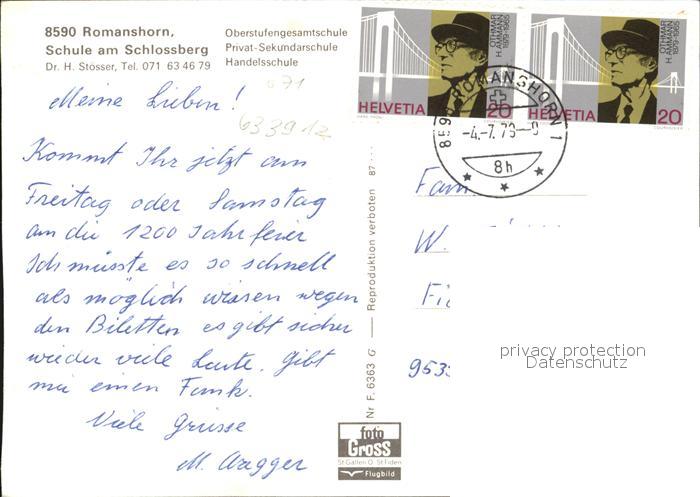 8590 Romanshorn,
Schule am Schlossberg
Dr. H. Stösser, Tel. 071 63 46 79
Oberstufengesamtschule
Privat-Sekundarschule
Handelsschule
071
633912
Meine Lieben!
Kommt Ihr jetzt am
Freitag oder Samstag
an die 1200 Jahrfeier
Ich müsste es so schnell
als möglich wissen wegen
den Biletten es gibt sicher
wieder viele Leute. Gibt
mir einen Funk.
Viele Grüsse
M. Aregger
Nr F. 6363 G — Reproduktion verboten 87
foto
Gross
St Gallen O. St Fiden
Flugbild
OTHMAR
H. AMMANN
1879-1965
HELVETIA 20
COURVOISIER
OTHMAR
H. AMMANN
1879-1965
HELVETIA 20
COURVOISIER
8590 ROMANSHORN 1
-4.-7.79-8
8h
Fam
W.
953
privacy protection
Datenschutz